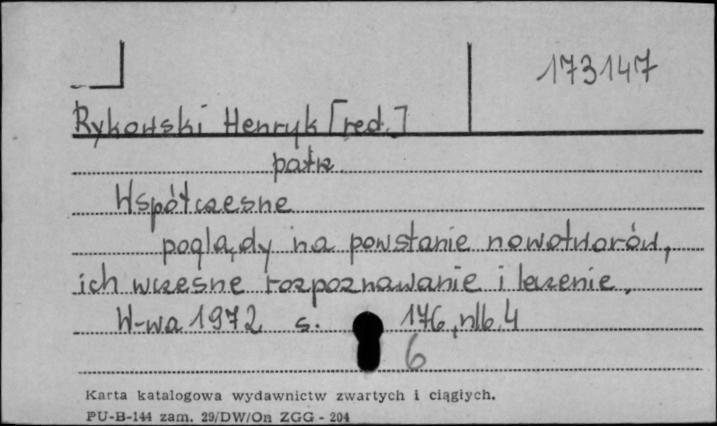 173147
Rykowski Henryk [red.]
patrz
Współczesne
poglądy na powstanie nowotworów,
ich wczesne rozpoznawanie i leczenie.
W-wa 1972 s. 176, nlb. 4
6
Karta katalogowa wydawnictw zwartych i ciągłych.
PU-B-144 zam. 29/DW/On ZGG - 204